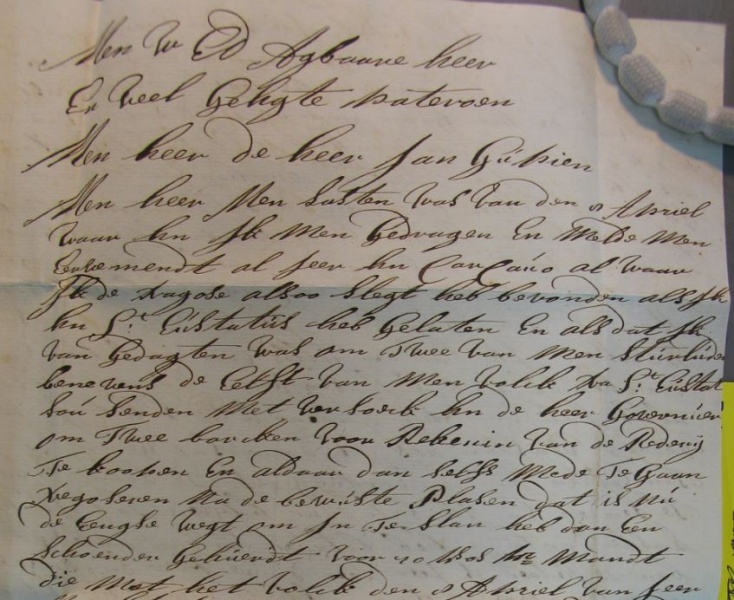 Men W Ed Agbaare heer
En veel Gehgte patervoen
Men heer de heer Jan Güpien
Men heer Men Lasten was van den 8 Apriel
waar hn Jk Men Gedragen En Melde Men
al seer hn Carcaúo al waar
Jk de Nagose alsoo slegt heb bevonden als Jk
hn St Eústatiüs heb Gelaten En als dat Jk
van Gedagten was om Twee van Men Stúrlúden
benevens de Celfst van Men volck na St Eústat
soú senden Met versoeck hn de heer Governúer
om Twee barcken voor Rekenin van de Rederij
Te koopen En aldaar dan selfs Mede Te Gaan
Negoseren Na de bewúste Plasen dat is Nú
de Eengse wegt om Jn Te slan heb dan Een
schoender Gehúerdt voor 20 Mandt
die Met het volck den 8 Apriel van seer